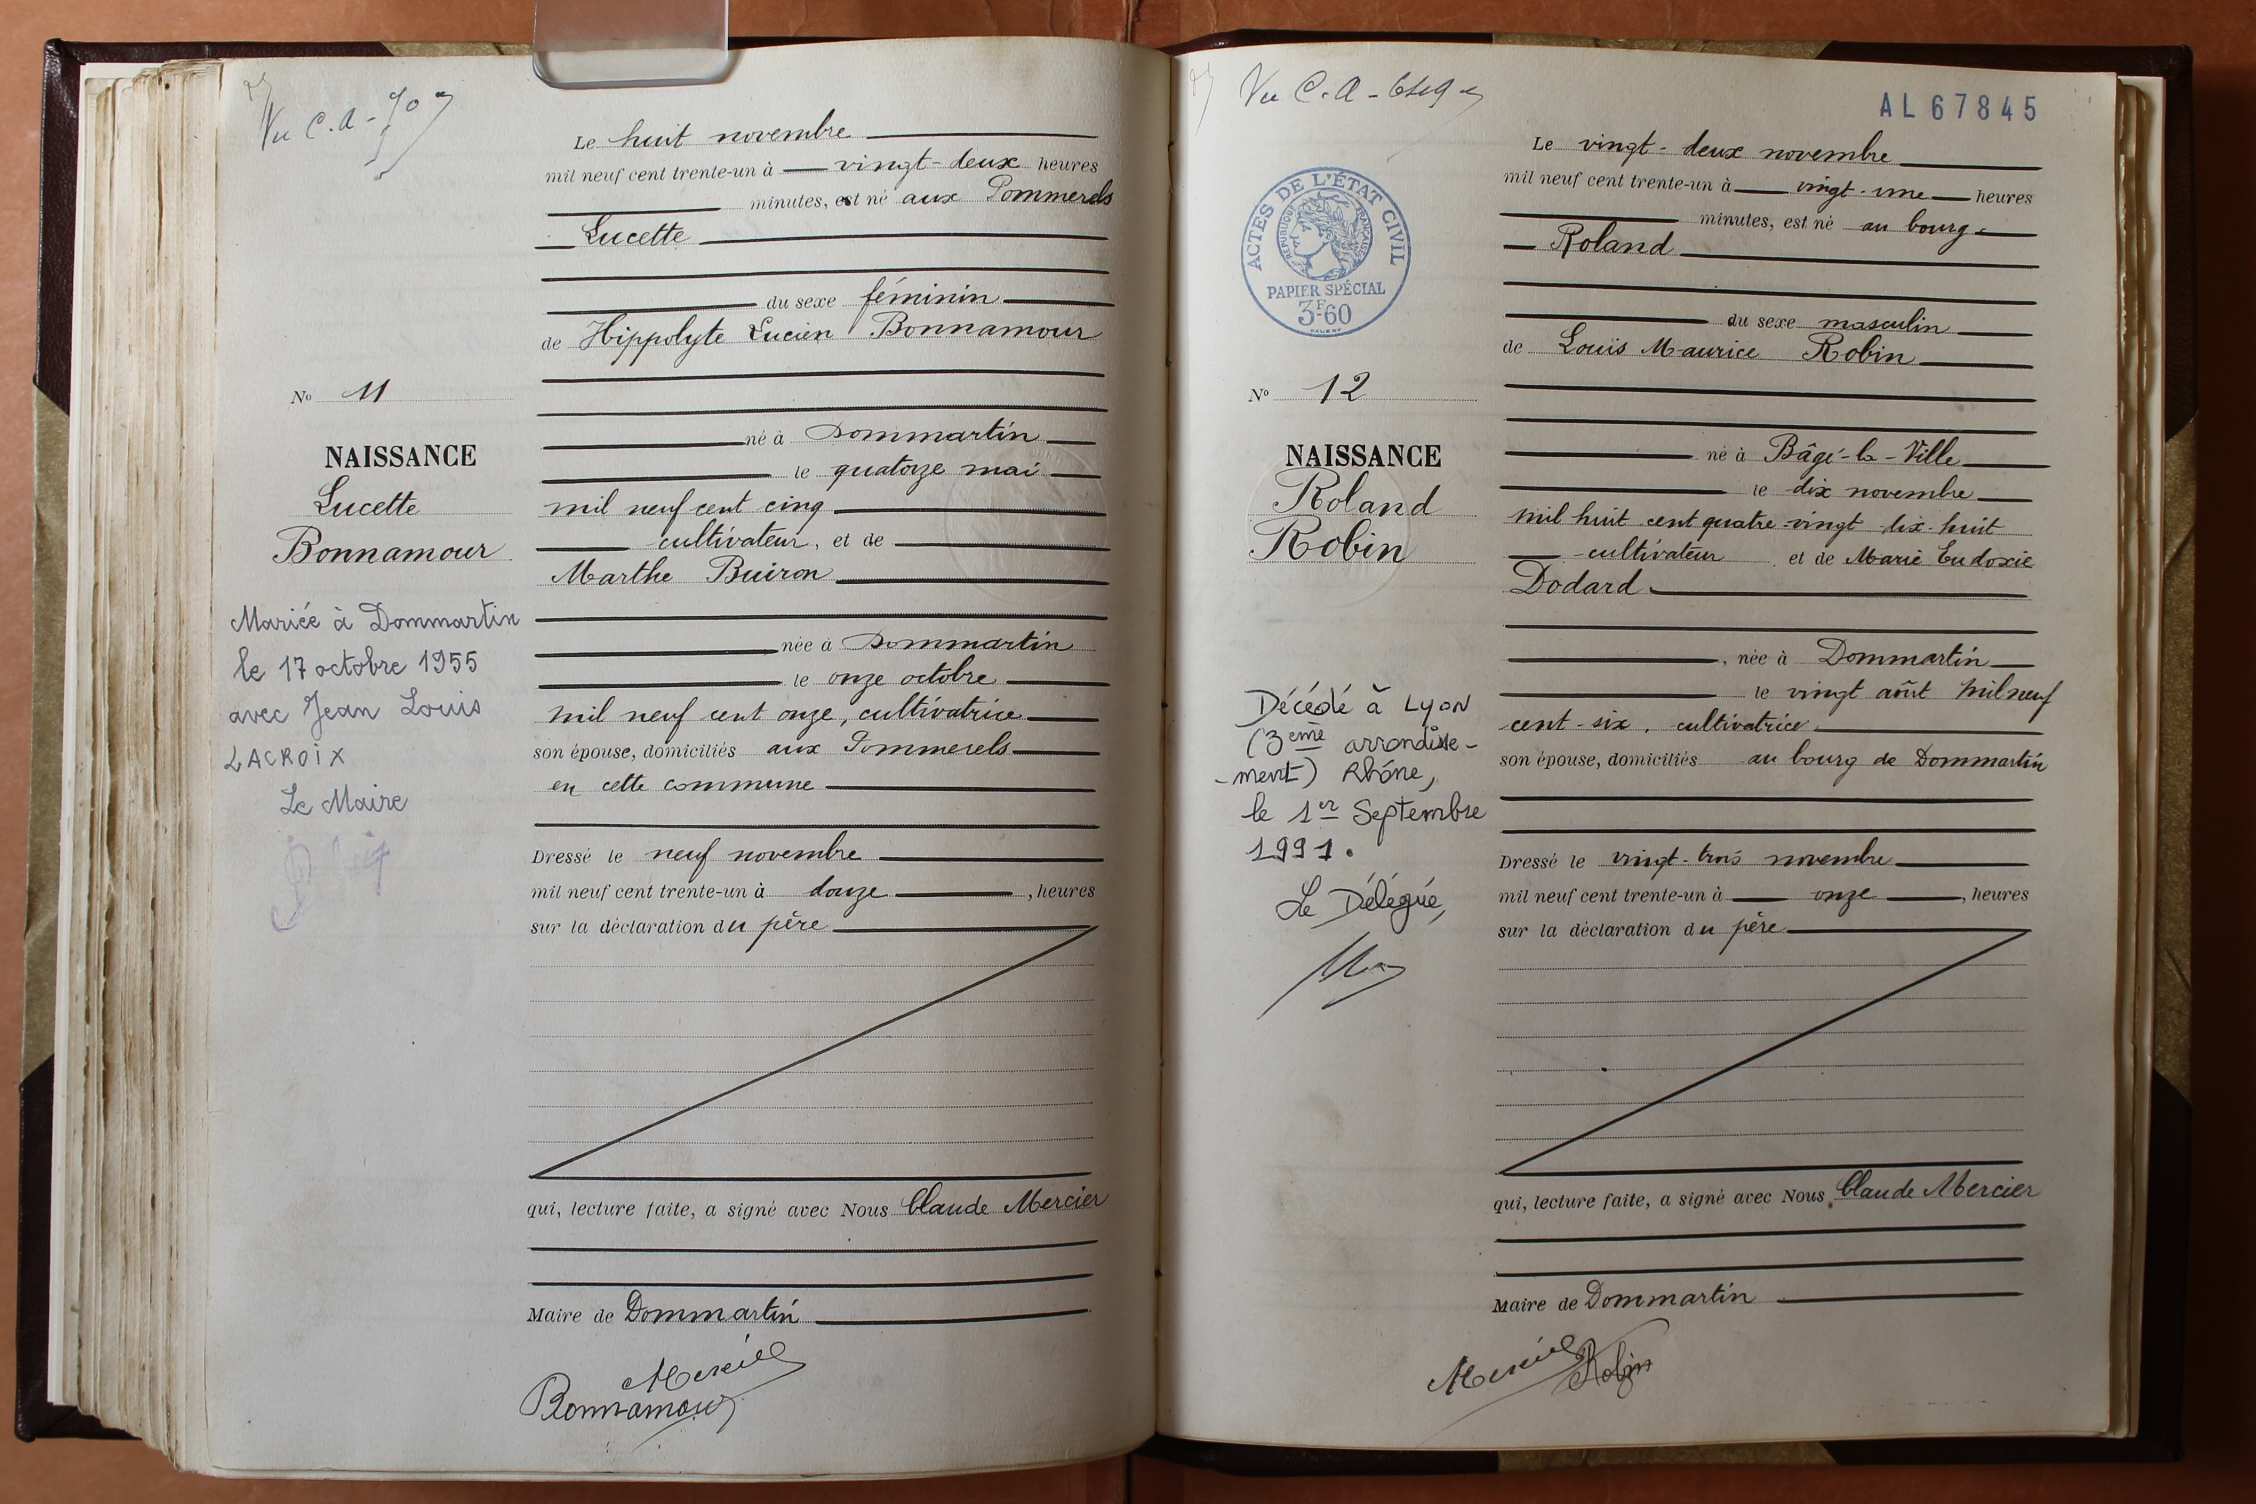 Vu C.A -
Le huit novembre
mil neuf cent trente-un à vingt-deux heures
minutes, est né aux Pommerels
Lucette
du sexe féminin
de Hippolyte Lucien Bonnamour
No 11
né à Dommartin
NAISSANCE
le quatorze mai
Lucette
mil neuf cent cinq
Bonnamour
cultivateur, et de
Marthe Buiron
Mariée à Dommartin
le 17 octobre 1955
avec Jean Louis
LACROIX
Le Maire
née à Dommartin
le onze octobre
mil neuf cent onze, cultivatrice
son épouse, domiciliés aux Pommerels
en cette commune
Dressé le neuf novembre
mil neuf cent trente-un à douze, heures
sur la déclaration du père
qui, lecture faite, a signé avec Nous Claude Mercier
Maire de Dommartin
Mercier
Bonnamour
Vu C.A -
AL 67845
ACTES DE L'ÉTAT CIVIL
RÉPUBLIQUE FRANÇAISE
PAPIER SPÉCIAL
3F60
Le vingt-deux novembre
mil neuf cent trente-un à vingt-une heures
minutes, est né au bourg
Roland
du sexe masculin
de Louis Maurice Robin
No 12
né à Bâgé-la-Ville
NAISSANCE
le dix novembre
Roland
mil huit cent quatre-vingt dix-huit
Robin
cultivateur et de Marie Eudoxie
Dodard
, née à Dommartin
le vingt août mil neuf
cent-six, cultivatrice
son épouse, domiciliés au bourg de Dommartin
Décédé à LYON
(3ème arrondisse-
-ment) Rhône,
le 1er Septembre
1991.
Le Délégué,
Dressé le vingt-trois novembre
mil neuf cent trente-un à onze, heures
sur la déclaration du père
qui, lecture faite, a signé avec Nous Claude Mercier
Maire de Dommartin
Mercier
Robin